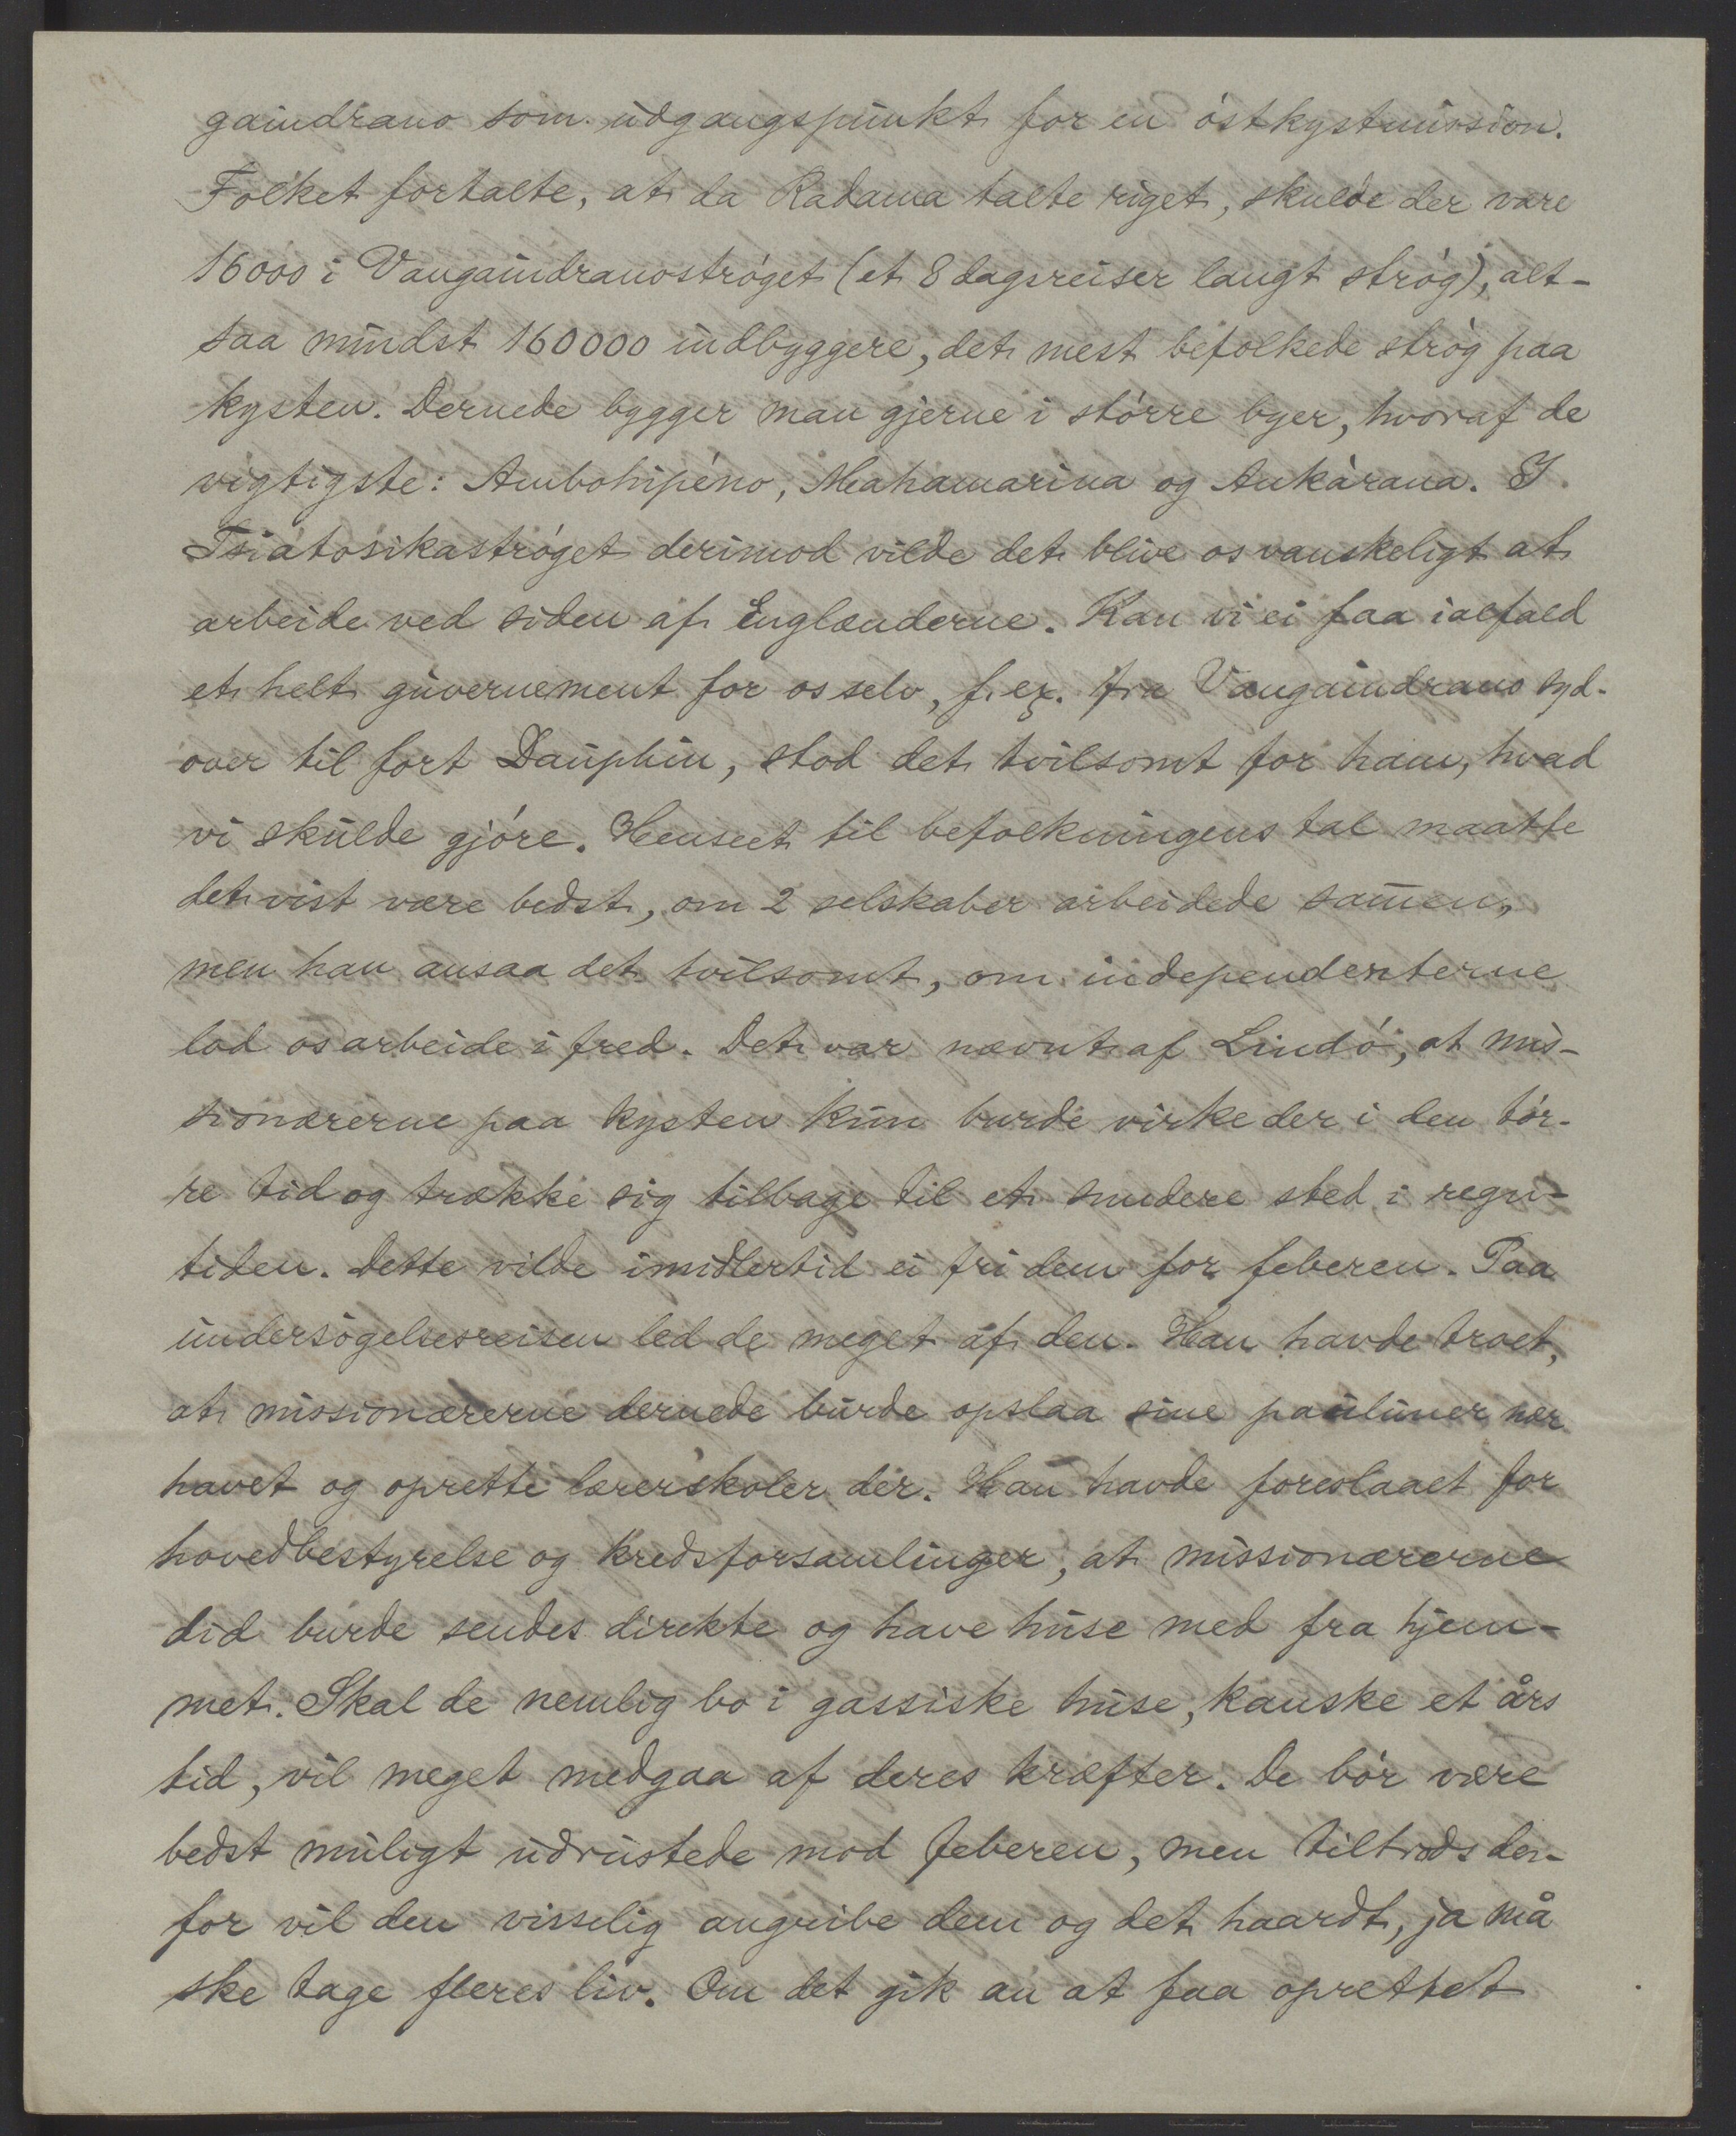 gaindrano som udgangspunkt for en østkystmission.
Folket fortalte, at da Radama talte riget, skulde der være
16000 i Vangaindranostrøget (et 8 dagsreiser langt strøg), alt-
saa mindst 160000 indbyggere, det mest befolkede strøg paa
kysten. Dernede bygger man gjerne i større byer, hvoraf de
vigtigste: Ambohipéno, Mahamarina og Ankàrana. I
Tsiatosikastrøget derimod vilde det blive os vanskeligt at
arbeide ved siden af Englænderne. Kan vi ei faa ialfald
et helt guvernement for os selv, f. ex. fra Vangaindrano syd-
over til fort Dauphin, stod det tvilsomt for ham, hvad
vi skulde gjøre. Henseet til befolkningens tal maatte
det vist være bedst, om 2 selskaber arbeidede sam̅en,
men han ansaa det tvilsomt, om independenterne
lod os arbeide i fred. Det var nævnt af Lindø, at mis-
sionærerne paa kysten kun burde virke der i den tør-
re tid og trække sig tilbage til et sundere sted i regn-
tiden. Dette vilde imidlertid ei fri dem for feberen. Paa
undersøgelsesreisen led de meget af den. Han havde troet,
at missionærerne dernede burde opslaa sine pauluner nær
havet og oprette lærerskoler der. Han havde foreslaaet for
hovedbestyrelse og kredsforsamlinger, at missionærerne
did burde sendes direkte og have huse med fra hjem-
met. Skal de nemlig bo i gassiske huse, kanske et års
tid, vil meget medgaa af deres kræfter. De bør være
bedst muligt udrustede mod feberen, men tiltrods der-
for vil den visselig angribe dem og det haardt, ja må
ske tage fleres liv. Om det gik an at faa oprettet